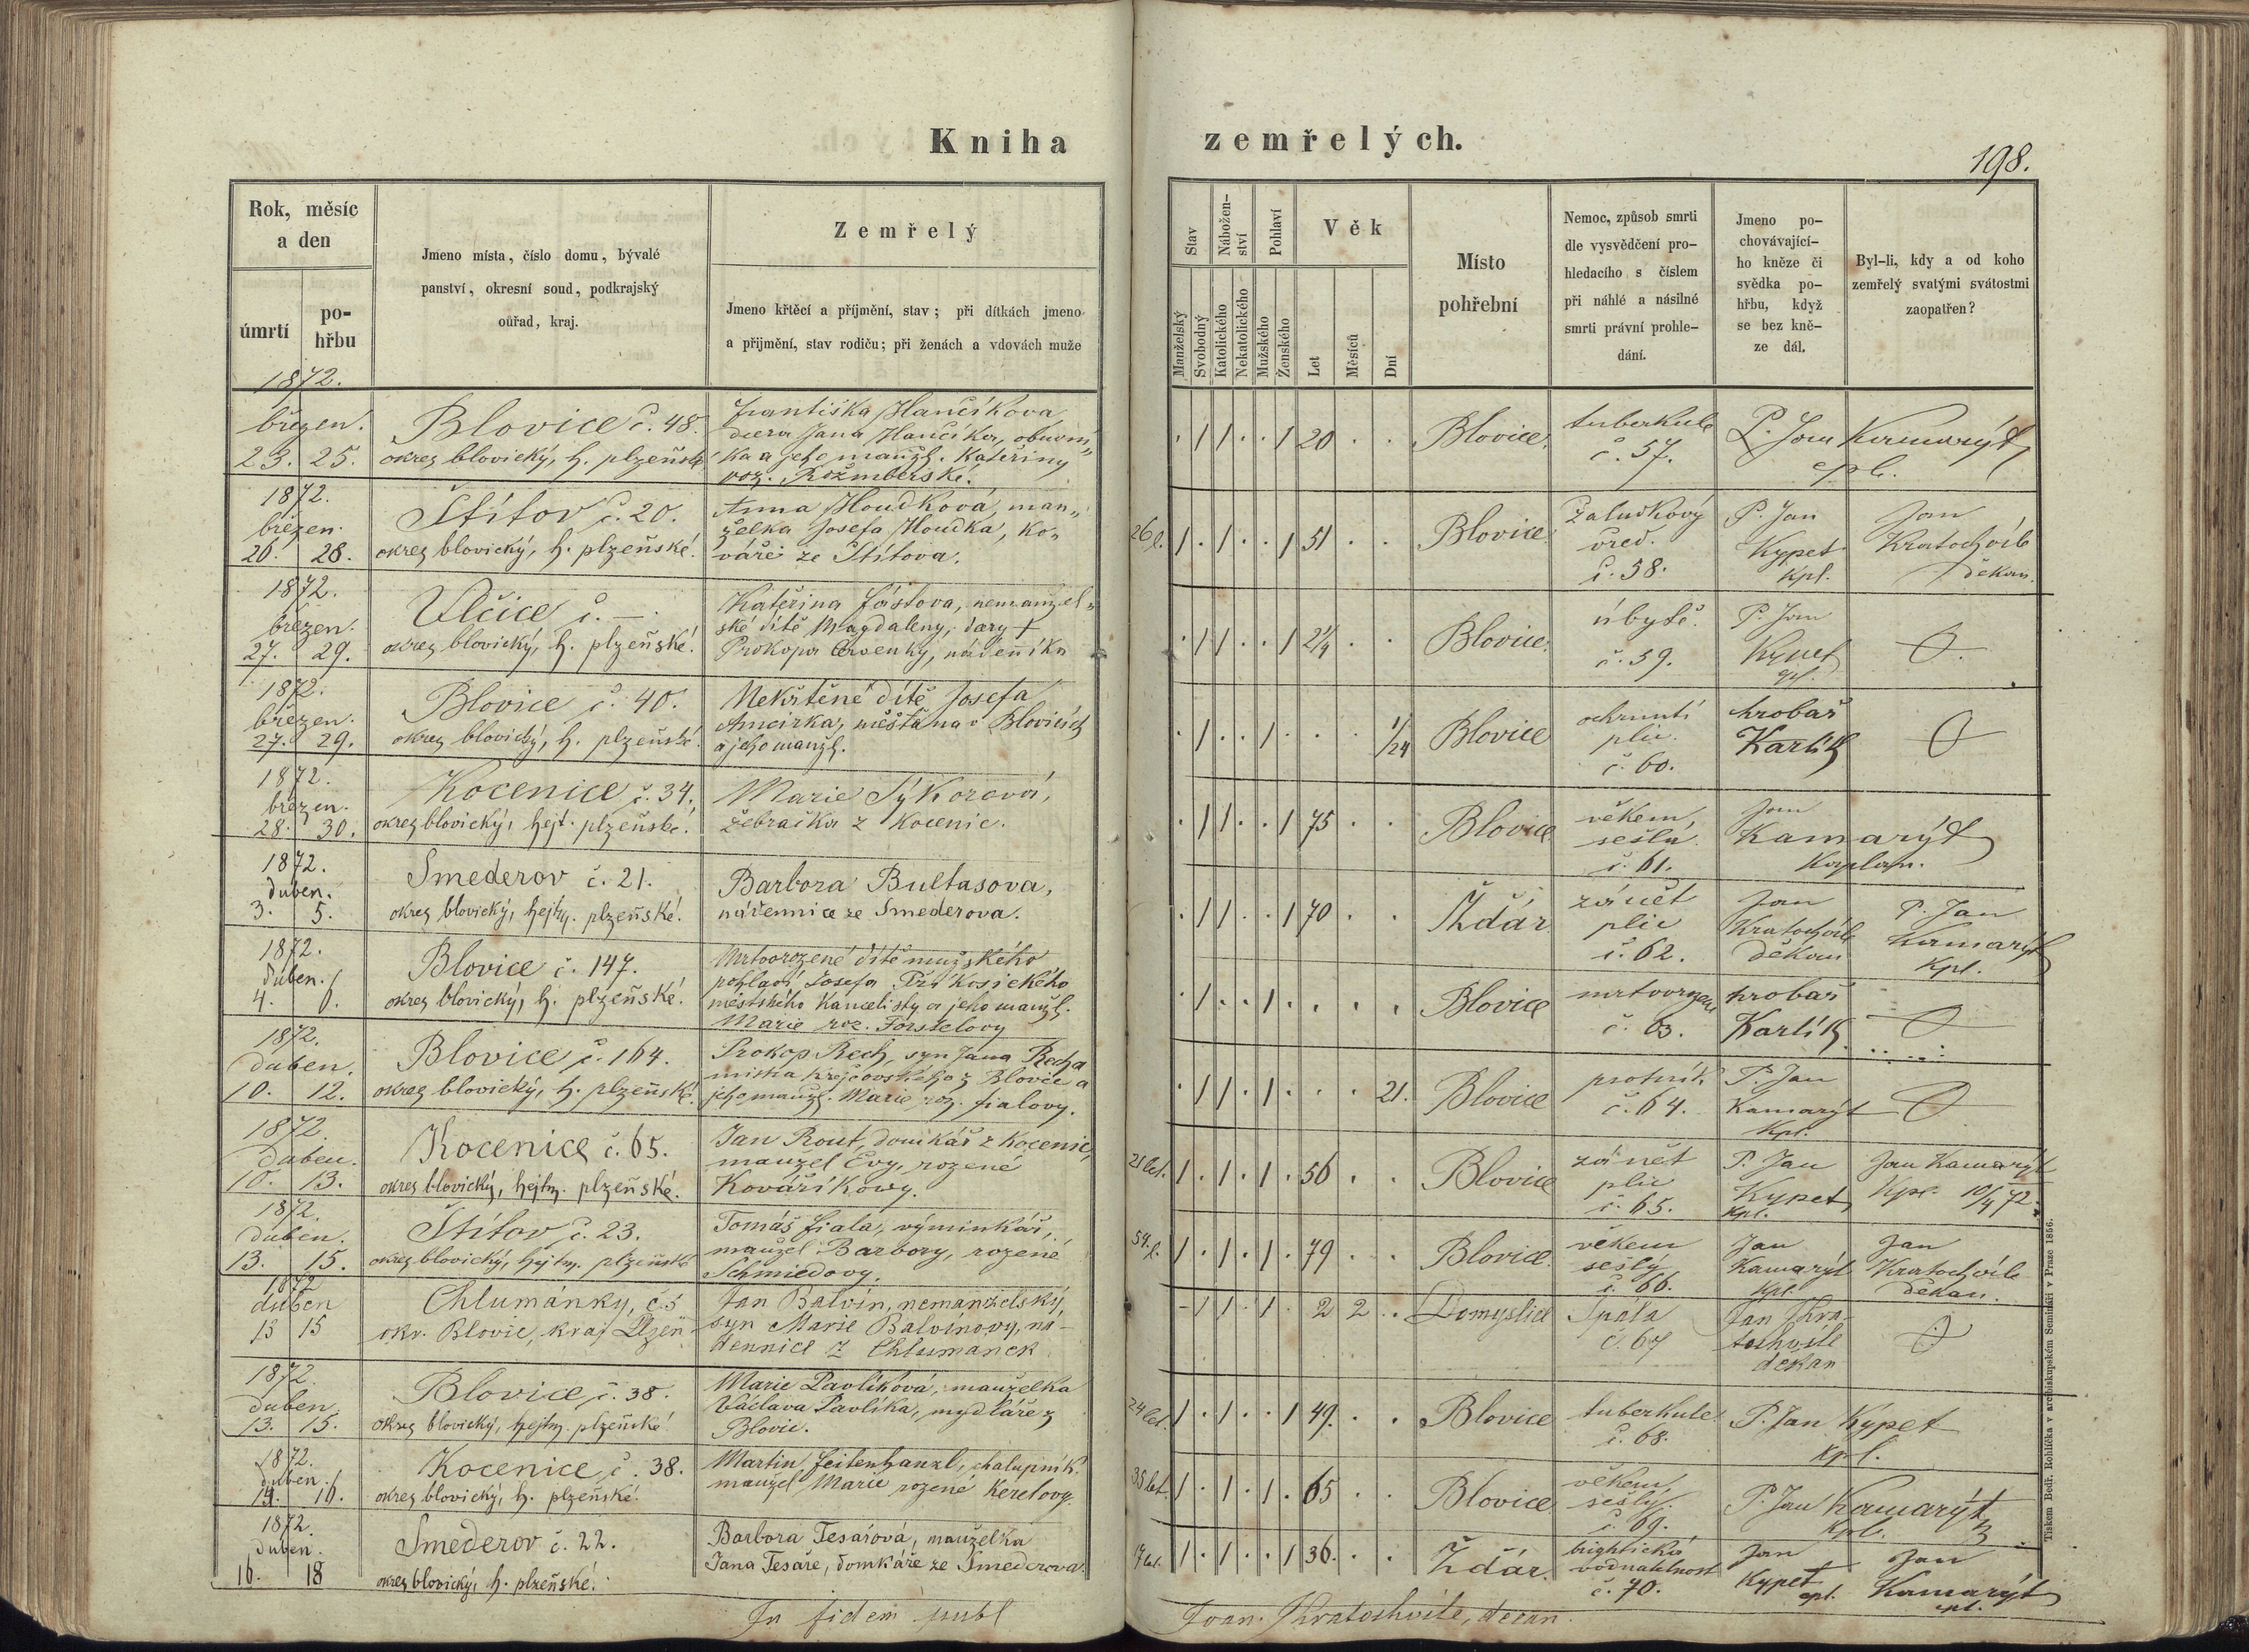 Kniha zemřelých.
198.
Rok, měsíc a den
úmrtí
pohřbu
Jmeno místa, číslo domu, bývalé
panství, okresní soud, podkrajský
ouřad, kraj.
Zemřelý
Jmeno křtěcí a příjmění, stav; při dítkách jmeno
a přijmění, stav rodiču; při ženách a vdovách muže
Stav
Manželský
Svobodný
Nábožen-
ství
Katolického
Nekatolického
Pohlaví
Mužského
Ženského
Věk
Let
Měsíců
Dní
Místo
pohřební
Nemoc, způsob smrti
dle vysvědčení pro-
hledacího s číslem
při náhlé a násilné
smrti právní prohle-
dání.
Jmeno po-
chovávající-
ho kněze či
svědka po-
hřbu, když
se bez kně-
ze dál.
Byl-li, kdy a od koho
zemřelý svatými svátostmi
zaopatřen?
1872.
březen.
23. 25.
Blovice č. 48.
okres blovický, h. plzeňské
Františka Hančíkova
dcera Jana Hančíka, obuvní„
ka a jeho manžl. Kateřiny
roz. Rožmberské.
20
Blovice.
tuberkule
č. 57.
P. Jan Kamarýt
cpl.
1872.
březen.
26. 28.
Štítov č. 20.
okres blovický, h. plzeňské.
Anna Houdková, man„
želka Josefa Houdka, ko„
váře ze Štítova.
26 l.
51
Blovice.
Žaludkový
vřed.
č. 58.
P. Jan
Kypet
kpl.
Jan
Kratochvíle
děkan.
1872.
březen.
27. 29.
Vlčice č. —
okres blovický, h. plzeňské.
Kateřina Fástova, nemanžel„
ské dítě Magdaleny, dcery †
Prokopa Červenky, nádeníka
2 1/4
Blovice.
úbytě.
č. 59.
P. Jan
Kypet
cpl.
1872.
březen.
27. 29.
Blovice č. 40.
okres blovický, h. plzeňské.
Nekřtěné dítě Josefa
měšťana v Blovicích
a jeho manžl.
1/24
Blovice
ochrnutí
plic.
č. 60.
hrobař
Karlík
1872.
březen.
28. 30.
Kocenice č. 34.
okres blovický, hejt. plzeňské.
Marie Sýkorová,
žebračka z Kocenic.
75
Blovice
věkem
sešlá.
č. 61.
Jan
Kamarýt
Kaplan.
1872.
duben.
3. 5.
Smederov č. 21.
okres blovický, hejtm. plzeňské.
Barbora Bultasova,
nádennice ze Smederova.
70
Ždár
zánět
plic
č. 62.
Jan
Kratochvíle
děkan
P. Jan
Kamarýt
kpl.
1872.
duben.
4. 6.
Blovice č. 147.
okres blovický, h. plzeňské.
Mrtvorozené dítě mužského
pohlaví, Josefa Přikosického
městského kancelisty a jeho manžl.
Marie roz. Forstelovy
Blovice
mrtvorozené
č. 63.
hrobař
Karlík
1872.
duben.
10. 12.
Blovice č. 164.
okres blovický, h. plzeňské.
Prokop Rech, syn Jana Recha
mistra krejčovského z Blovic a
jeho manžl. Marie roz. Fialovy.
21.
Blovice
psotník
č. 64.
P. Jan
Kamarýt
kpl.
1872.
duben.
10. 13.
Kocenice č. 65.
okres blovický, hejtm. plzeňské.
Jan Rout, domkář z Kocenic,
manžel Evy, rozené
Kovaříkovy.
21 let.
56
Blovice
zánět
plic
č. 65.
P. Jan
Kypet
kpl.
Jan Kamarýt
kpl. 10/4 72.
1872.
duben.
13. 15.
Štítov č. 23.
okres blovický, hejtm. plzeňské
Tomáš Fiala, výminkář,
manžel Barbory, rozené
Schmiedovy.
54 l.
79
Blovice.
věkem
sešlý
č. 66.
Jan
Kamarýt
kpl.
Jan
Kratochvíle
děkan.
1872
duben
13 15
Chlumánky, č. 5
okr. Blovic, kraj Plzeň
Jan Balvín, nemanželský,
syn Marie Balvínovy, ná-
dennice z Chlumánek
2 2
Domyslice
Spála
č. 67
Jan Kra-
tochvíle
děkan
1872.
duben
13. 15.
Blovice č. 38.
okres blovický, hejtm. plzeňské
Marie Pavlíková, manželka
Václava Pavlíka, mydláře z
Blovic.
24 let.
49.
Blovice
tuberkule
č. 68.
P. Jan Kypet
kpl.
1872.
duben.
14. 16.
Kocenice č. 38.
okres blovický, h. plzeňské.
Martin Feitenhanzl, chalupník.
manžel Marie rozené Keretovy.
35 let.
65
Blovice
věkem
sešlý.
č. 69.
P. Jan Kamarýt
kpl.
1872.
duben.
16. 18
Smederov č. 22.
okres blovický, h. plzeňské.
Barbora Tesařová, manželka
Jana Tesaře, domkáře ze Smederova.
17 let.
36.
Ždár.
brightická
vodnatelnost
č. 70.
Jan
Kypet
cpl.
Jan
Kamarýt
cpl.
In fidem publ
Joan. Kratochvíle, decan.
Tiskem Bedř. Rohlíčka v arcibiskupském Semináři v Praze 1856.